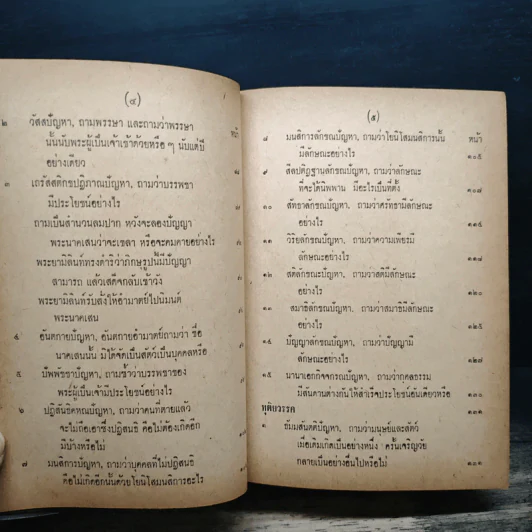 (๔)
๒ วัสสปัญหา, ถามพรรษา และถามว่าพรรษา หน้า
นั้นนับพระผู้เป็นเจ้าเข้าด้วยหรือ ๆ นับแต่ปี
อย่างเดียว
๓ เถรัสสติกขปฏิภาณปัญหา, ถามว่าบรรพชา
มีประโยชน์อย่างไร
ถามเป็นสำนวนลมปาก หวังจะลองปัญญา
พระนาคเสนว่าจะเขลา หรือจะคมคายอย่างไร
พระยามิลินท์ทรงดำริว่าภิกษุรูปนี้มีปัญญา
สามารถ แล้วเสด็จกลับเข้าวัง
พระยามิลินท์รับสั่งให้อำมาตย์ไปนิมนต์
พระนาคเสน
๔ อันตกายปัญหา, อันตกายอำมาตย์ถามว่า ชื่อ
นาคเสนนั้น มิได้จัดเป็นสัตว์เป็นบุคคลหรือ
๕ ปัพพัชชาปัญหา, ถามซ้ำว่าบรรพชาของ
พระผู้เป็นเจ้ามีประโยชน์อย่างไร
๖ ปฏิสนธิคหณปัญหา, ถามว่าคนที่ตายแล้ว
จะไม่ถือเอาซึ่งปฏิสนธิ คือไม่ต้องเกิดอีก
มีบ้างหรือไม่
๗ มนสิการปัญหา, ถามว่าบุคคลที่ไม่ปฏิสนธิ
คือไม่เกิดอีกนั้นด้วยโยนิโสมนสิการอะไร
(๕)
๘ มนสิการลักขณปัญหา, ถามว่าโยนิโสมนสิการนั้น หน้า
มีลักษณะอย่างไร ๑๐๕
๙ สีลปติฏฐานลักขณปัญหา, ถามว่าลักษณะ
ที่จะได้นิพพาน มีอะไรเป็นที่ตั้ง ๑๐๗
๑๐ สัทธาลักขณปัญหา, ถามว่าศรัทธามีลักษณะ
อย่างไร
๑๑ วิริยลักขณปัญหา, ถามว่าความเพียรมี
ลักษณะอย่างไร
๑๒ สติลักขณะปัญหา, ถามว่าสติมีลักษณะ
อย่างไร ๑๒๐
๑๓ สมาธิลักขณปัญหา, ถามว่าสมาธิมีลักษณะ
อย่างไร ๑๒๕
๑๔ ปัญญาลักขณปัญหา, ถามว่าปัญญามี
ลักษณะอย่างไร ๑๒๗
๑๕ นานาเอกกิจจกรณปัญหา, ถามว่ากุศลธรรม
มีสันดานต่างกันให้สำเร็จประโยชน์อันเดียวหรือ
ทุติยวรรค
๑ ธัมมสันตติปัญหา, ถามว่ามนุษย์และสัตว์
เมื่อเดิมเกิดเป็นอย่างหนึ่ง ครั้นเจริญวัย
กลายเป็นอย่างอื่นไปหรือไม่